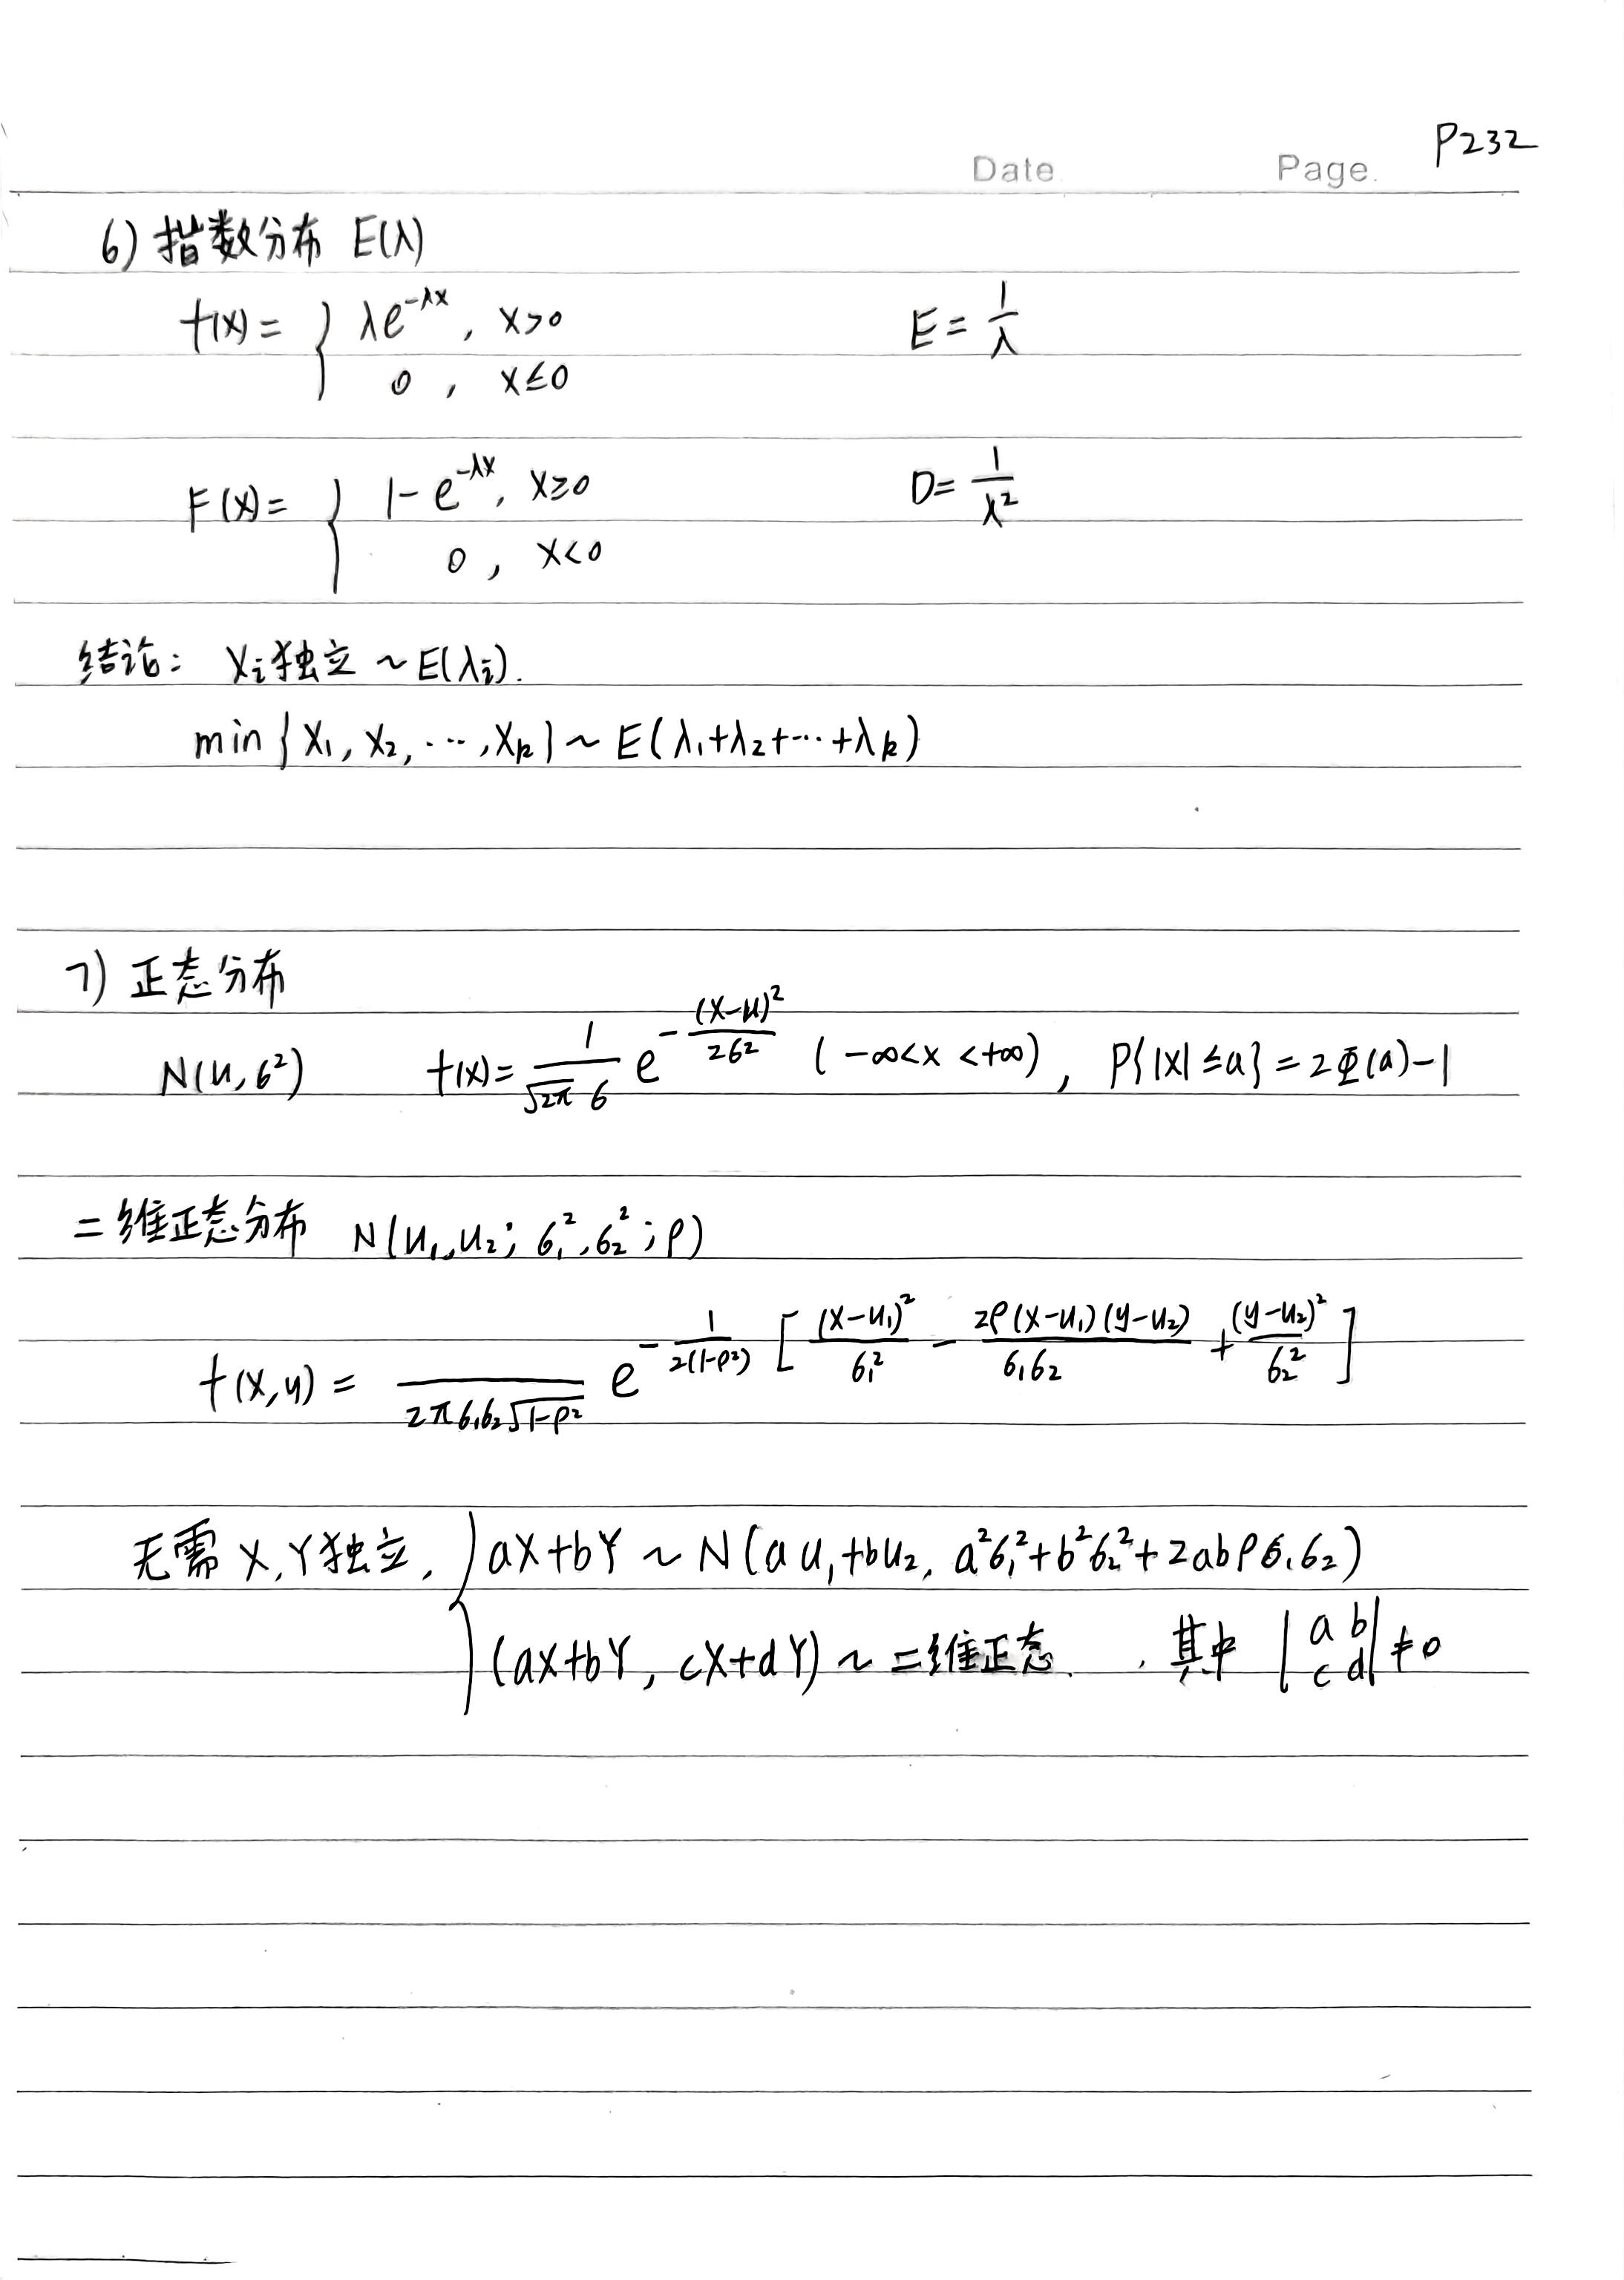 P232
Date Page.
6) 指数分布 E(λ)
f(x) = { λe^{-λx}, x>0
0 , x≤0
E = 1/λ
F(x) = { 1-e^{-λx}, x≥0
0 , x<0
D = 1/λ²
结论: Xi独立 ~ E(λi).
min{X₁, X₂, ⋯, Xk} ~ E(λ₁+λ₂+⋯+λk)
7) 正态分布
N(μ, σ²) f(x) = 1/(√2π σ) e^{-(x-μ)²/2σ²} (-∞<x<+∞), P{|X|≤a} = 2Φ(a)-1
二维正态分布 N(μ₁, μ₂; σ₁², σ₂²; ρ)
f(x,y) = /(2πσ₁σ₂√1-ρ²) e^{-1/2(1-ρ²) [(x-μ₁)²/σ₁² - 2ρ(x-μ₁)(y-μ₂)/σ₁σ₂ + (y-μ₂)²/σ₂²]}
无需 X, Y独立, { aX+bY ~ N(aμ₁+bμ₂, a²σ₁²+b²σ₂²+2abρσ₁σ₂)
(aX+bY, cX+dY) ~ 二维正态. , 其中 |a b; c d| ≠ 0